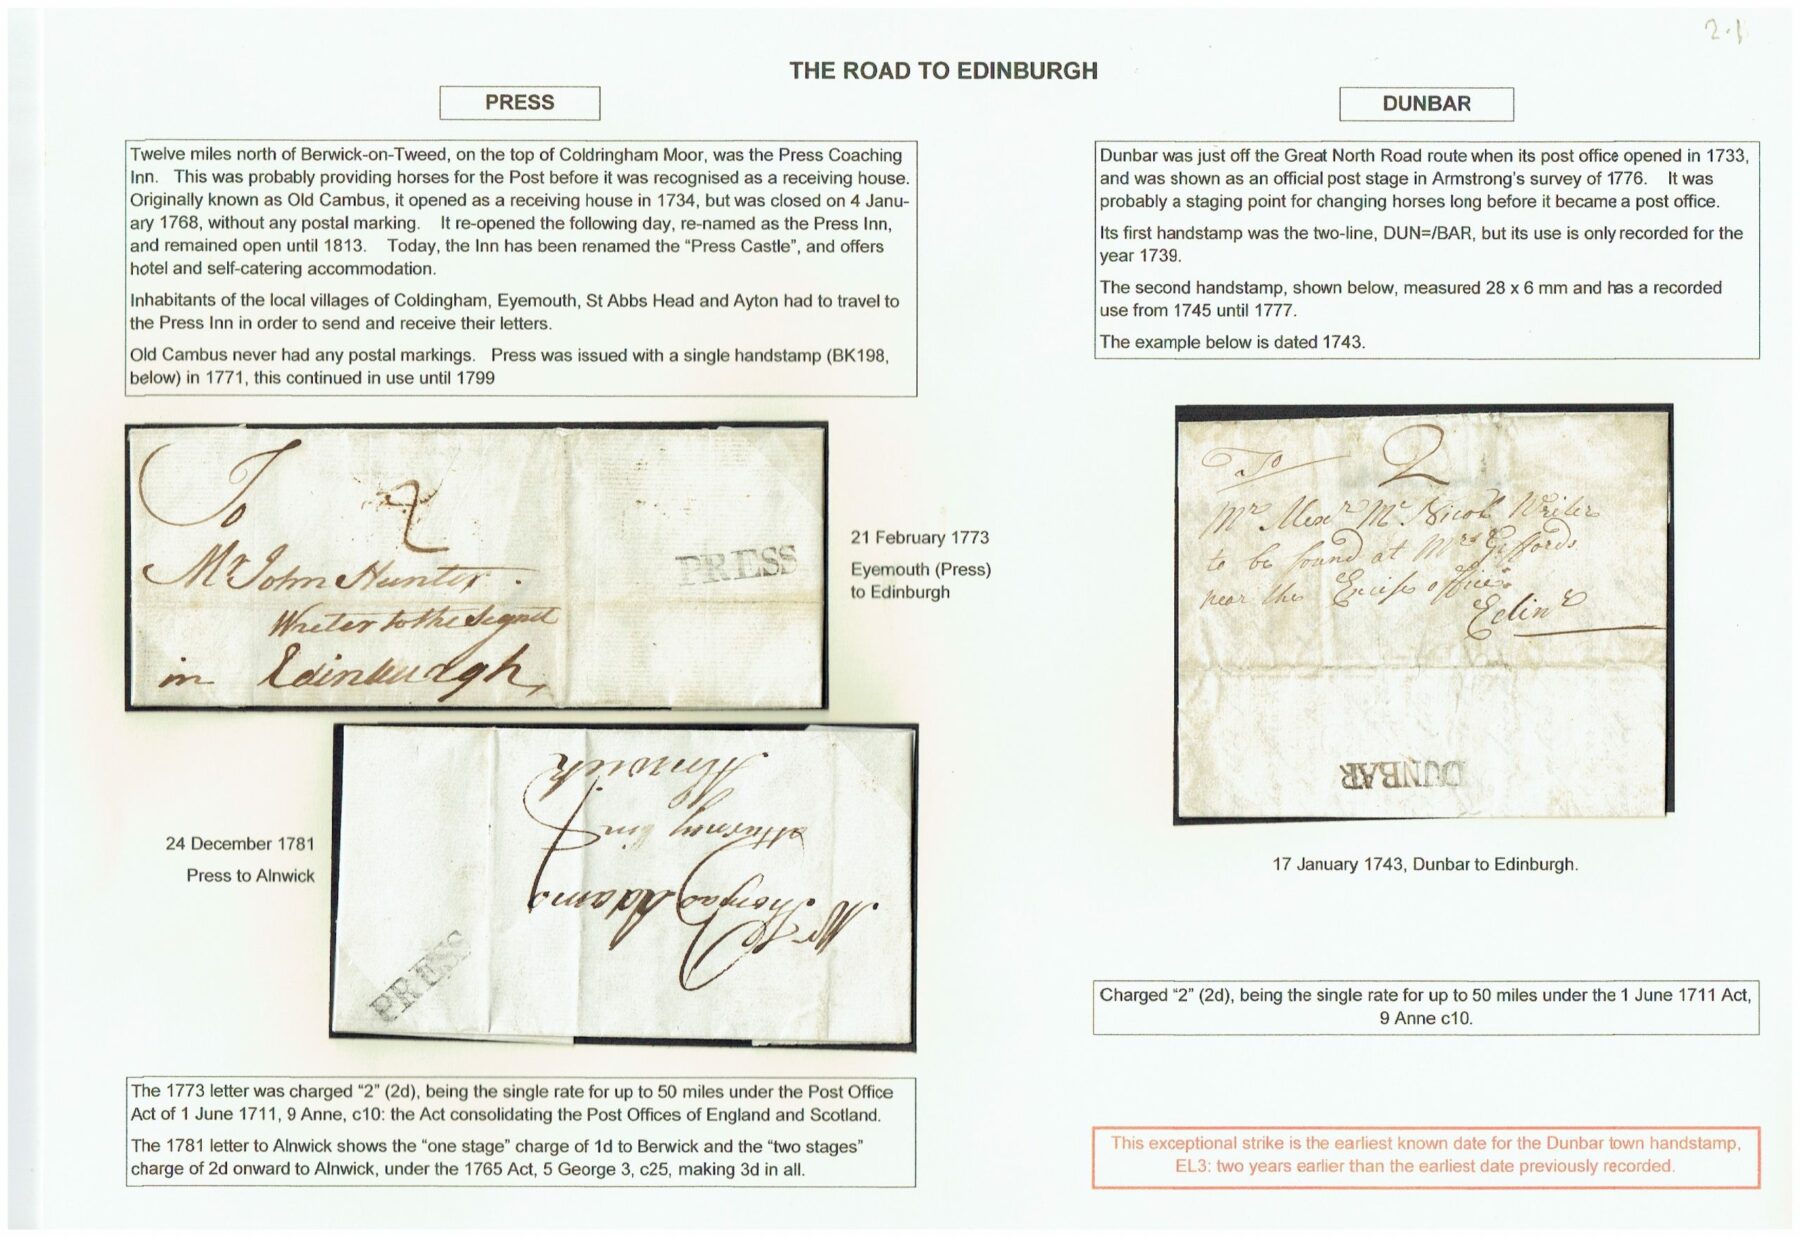 2.1
THE ROAD TO EDINBURGH
PRESS
Twelve miles north of Berwick-on-Tweed, on the top of Coldringham Moor, was the Press Coaching
Inn. This was probably providing horses for the Post before it was recognised as a receiving house.
Originally known as Old Cambus, it opened as a receiving house in 1734, but was closed on 4 Janu-
ary 1768, without any postal marking. It re-opened the following day, re-named as the Press Inn,
and remained open until 1813. Today, the Inn has been renamed the “Press Castle”, and offers
hotel and self-catering accommodation.
Inhabitants of the local villages of Coldingham, Eyemouth, St Abbs Head and Ayton had to travel to
the Press Inn in order to send and receive their letters.
Old Cambus never had any postal markings. Press was issued with a single handstamp (BK198,
below) in 1771, this continued in use until 1799
To
2
Mr John Hunter
Writer to the Signet
in Edinburgh
PRESS
21 February 1773
Eyemouth (Press)
to Edinburgh
24 December 1781
Press to Alnwick
Mr Thomas Adams
Attorney in
Alnwick
PRESS
The 1773 letter was charged “2” (2d), being the single rate for up to 50 miles under the Post Office
Act of 1 June 1711, 9 Anne, c10: the Act consolidating the Post Offices of England and Scotland.
The 1781 letter to Alnwick shows the “one stage” charge of 1d to Berwick and the “two stages”
charge of 2d onward to Alnwick, under the 1765 Act, 5 George 3, c25, making 3d in all.
DUNBAR
Dunbar was just off the Great North Road route when its post office opened in 1733,
and was shown as an official post stage in Armstrong’s survey of 1776. It was
probably a staging point for changing horses long before it became a post office.
Its first handstamp was the two-line, DUN=/BAR, but its use is only recorded for the
year 1739.
The second handstamp, shown below, measured 28 x 6 mm and has a recorded
use from 1745 until 1777.
The example below is dated 1743.
To
2
Mr Alexr Mc Nicol Writer
to be found at Mrs Giffords
near the Excise office
Edinr
DUNBAR
17 January 1743, Dunbar to Edinburgh.
Charged “2” (2d), being the single rate for up to 50 miles under the 1 June 1711 Act,
9 Anne c10.
This exceptional strike is the earliest known date for the Dunbar town handstamp,
EL3: two years earlier than the earliest date previously recorded.